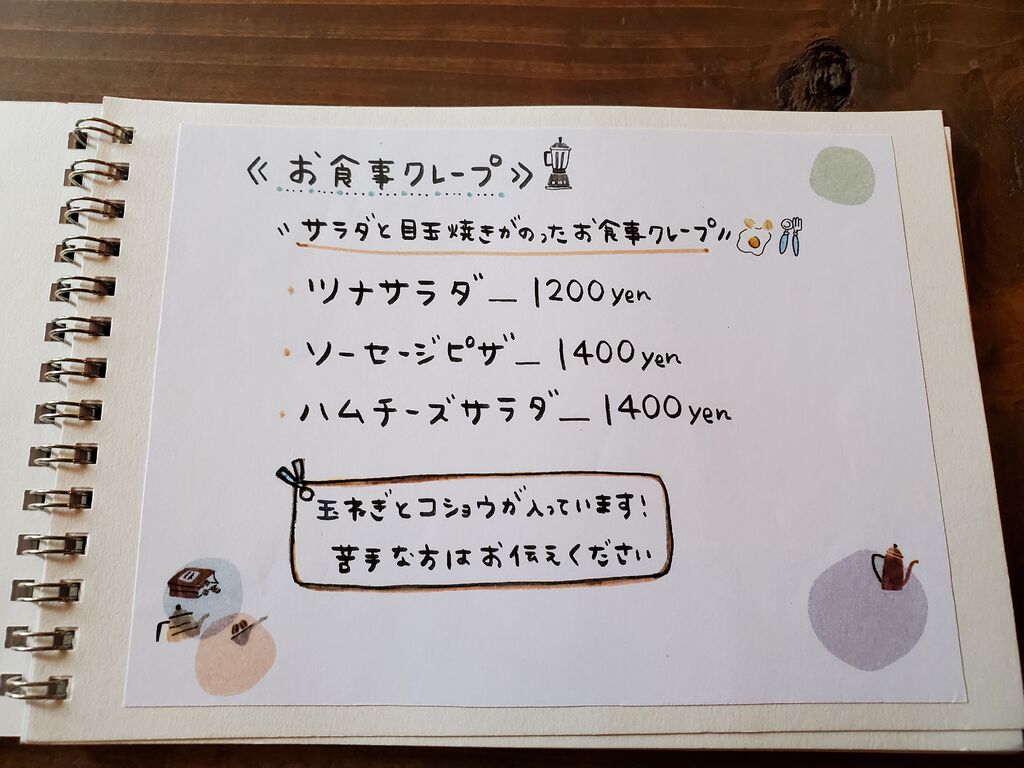 ≪お食事クレープ≫
"サラダと目玉焼きがのったお食事クレープ"
・ツナサラダ_1200yen
・ソーセージピザ_1400yen
・ハムチーズサラダ_1400yen
玉ねぎとコショウが入っています!
苦手な方はお伝えください